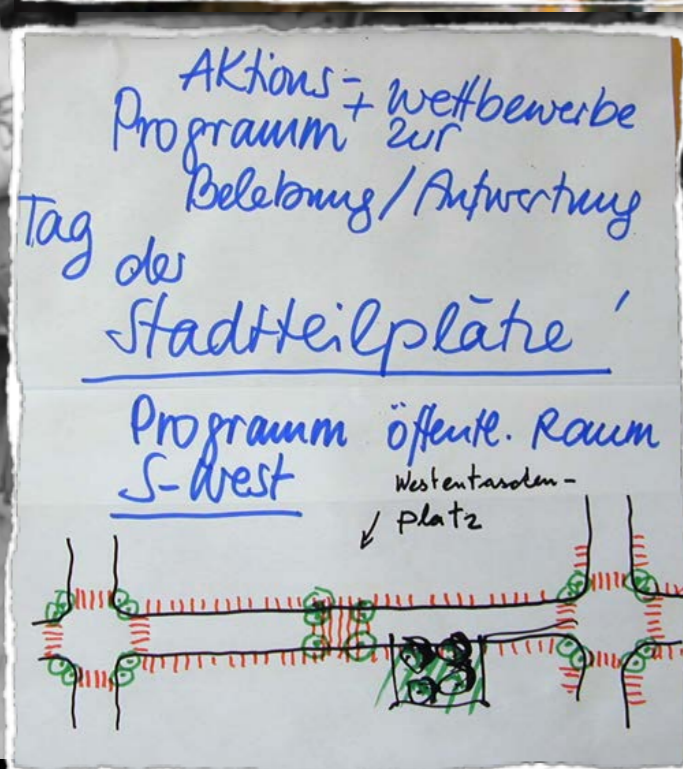 Aktions- + Wettbewerbe
Programm zur
Belebung/Aufwertung
Tag der
Stadtteilplätze
Programm öffentl. Raum
S-West
Westentaschen-
platz